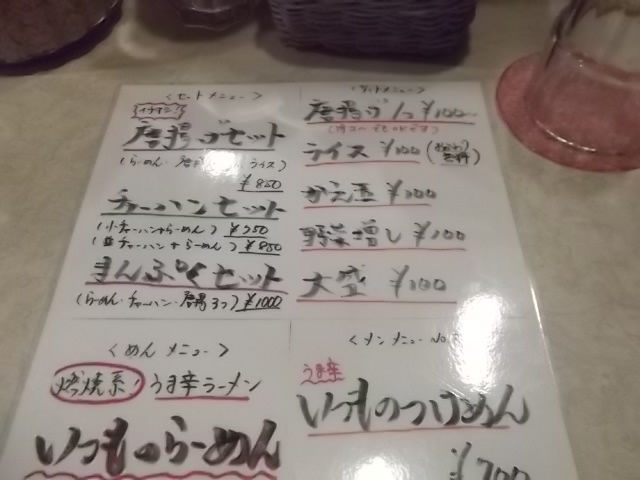 <セットメニュー>
イチオシ!
唐揚げセット
(らーめん・唐 ライス)
¥850
チャーハンセット
(小チャーハン+らーめん) ¥750
(並チャーハン+らーめん) ¥850
まんぷくセット
(らーめん・チャーハン・唐揚3つ) ¥1000
メニュー>
唐揚げ1つ ¥100
ライス ¥100
かえ玉 ¥100
野菜増し ¥100
大盛 ¥100
<めんメニュー>
焙焼系! うま辛ラーメン
いつものらーめん
<メンメニュー
うま辛
いつものつけめん
¥700